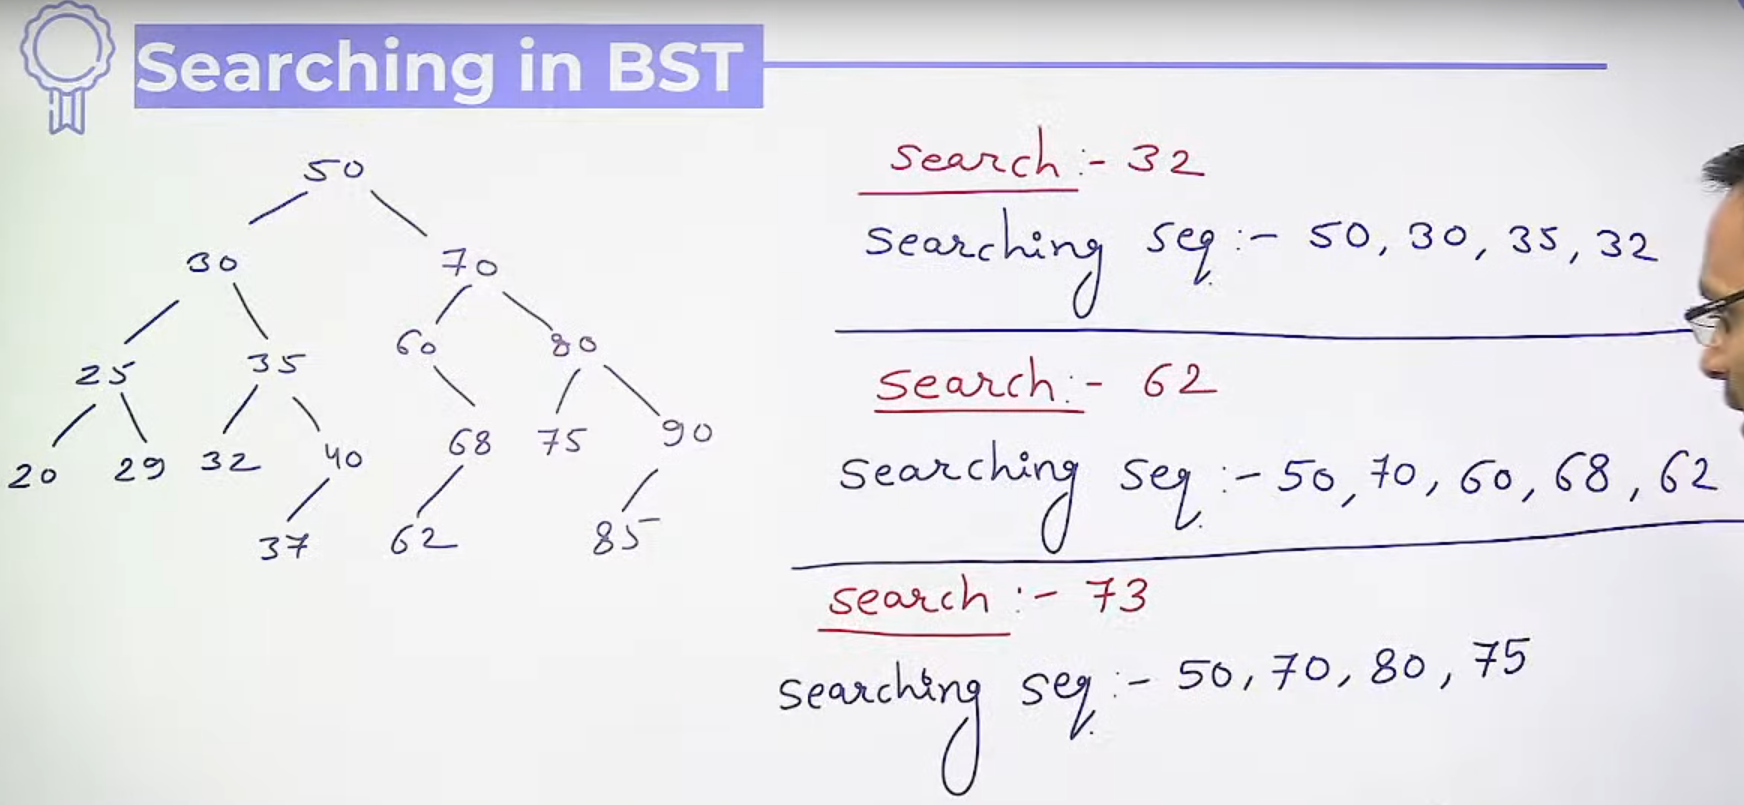 Searching in BST
50
30 70
25 35 60 80
20 29 32 40 68 75 90
37 62 85
Search :- 32
Searching seq :- 50, 30, 35, 32
Search :- 62
Searching seq :- 50, 70, 60, 68, 62
Search :- 73
Searching seq :- 50, 70, 80, 75